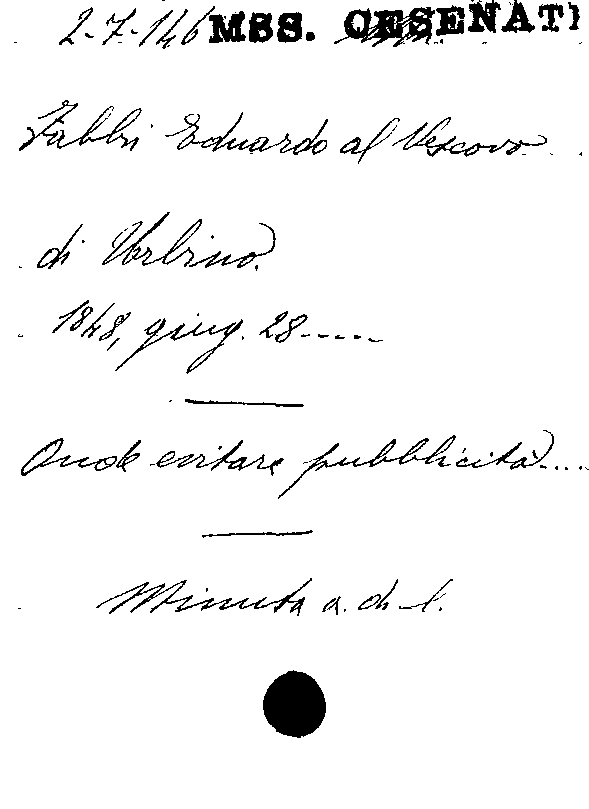 2-7-146 MSS. CESENATI
Fabbri Eduardo al Vescovo
di Urbino.
1848, giug. 28-----
Onde evitare pubblicità....
Minuta a. di l.